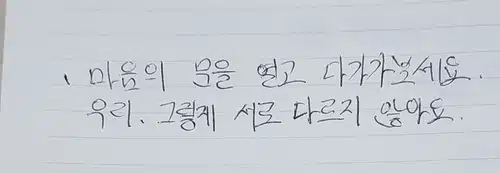 、마음의 문을 열고 다가가보세요.
우리. 그렇게 서로 다르지 않아요.